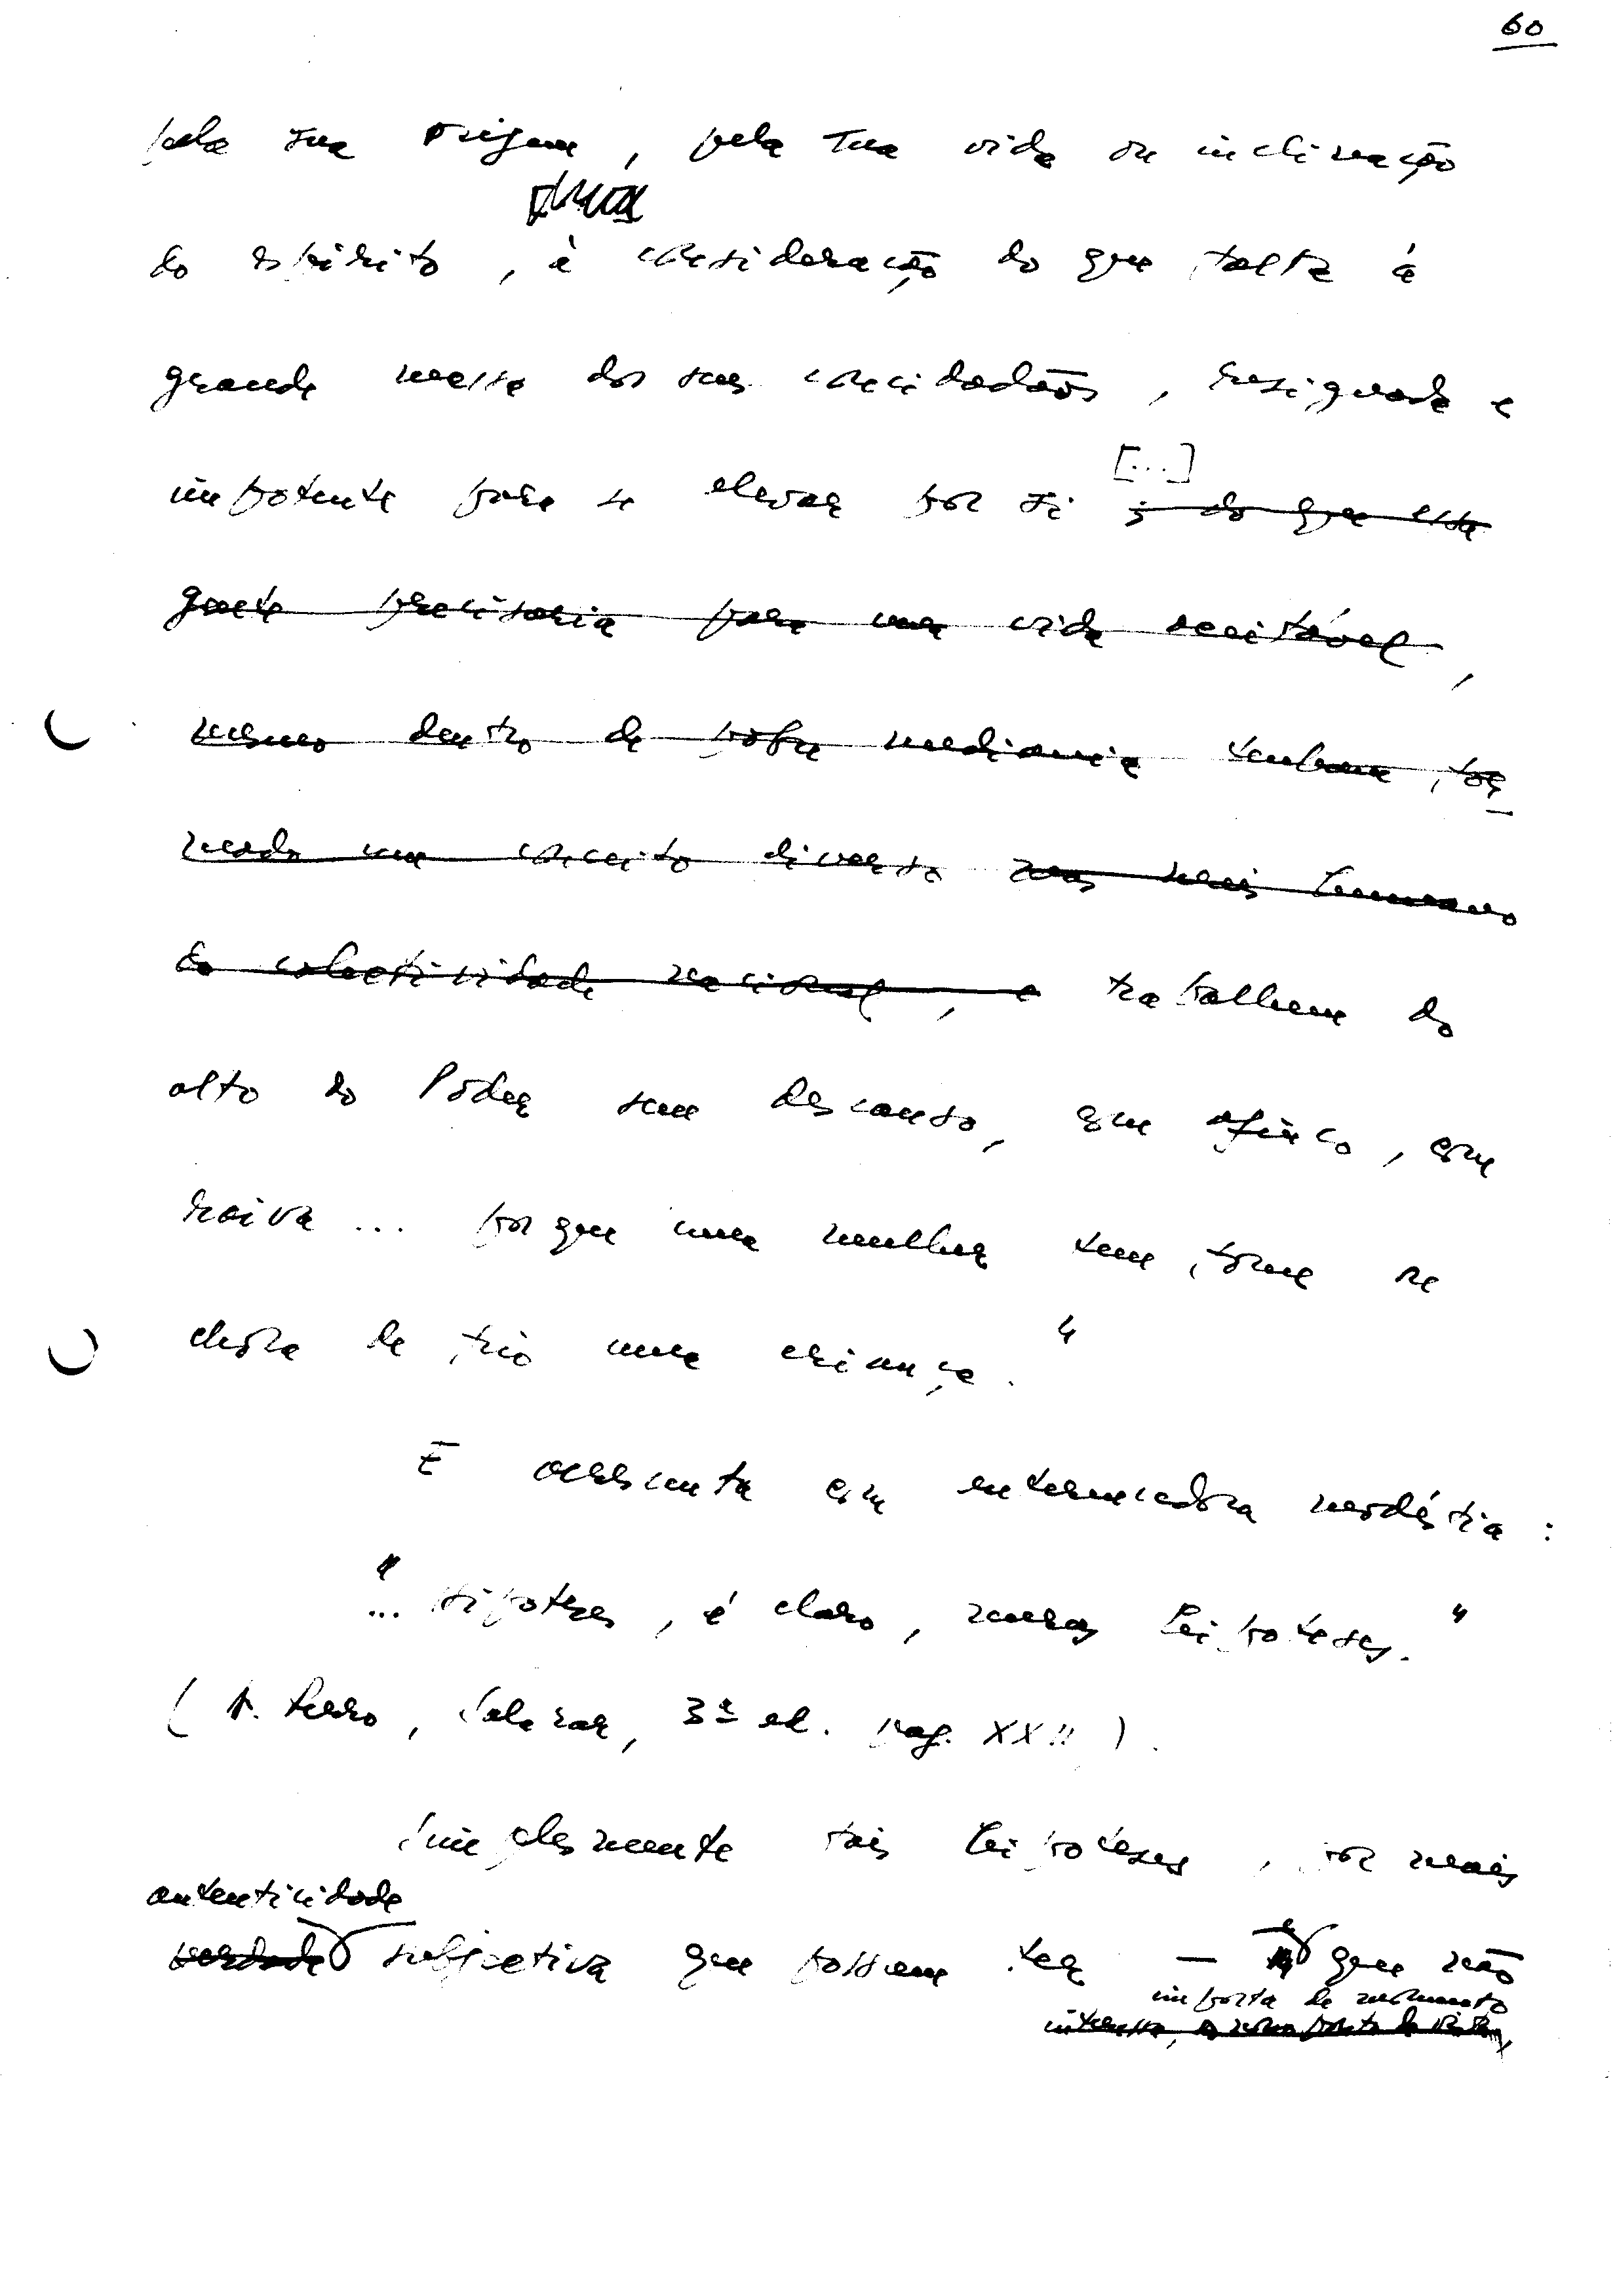 60
pela sua origem, pela sua vida ou inclinação
do espírito, à consideração do que falta à
grande massa dos seus concidadãos, resignada e
impotente para se elevar por si [...] ; do que esta
gente precisaria para uma vida aceitável,
mesmo dentro de pobre mediania tenham for
mado um conceito diverso mas mais humano
da colectividade nacional, e trabalhem do
alto do Poder sem descanso, com afinco, com
raiva... porque uma mulher tem fome ou
chora de frio uma criança."
E acrescenta com enternecedora modéstia:
"... Hipoteses, é claro, meras hipoteses."
(A. Ferro, Salazar, 3ª ed. pag. XXII).
Simplesmente tais hipoteses, por mais
autenticidade
verdade subjectiva que possam ter — e que não
importa de momento
interessa,